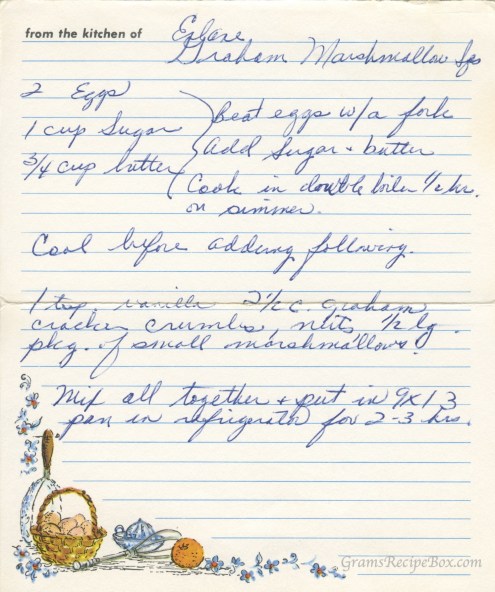 from the kitchen of
Graham Marshmallow Sqs
2 Eggs
Beat eggs w/a fork
1 cup Sugar
add Sugar + butter
3/4 cup butter
Cook in double boiler 1/2 hr.
on simmer.
Cool before adding following.
1 tsp vanilla 2 1/2 c. graham
cracker crumbs, nuts, 1/2 lg.
pkg. of small marshmallows.
Mix all together + put in 9x13
pan in refrigerator for 2-3 hrs.
GramsRecipeBox.com